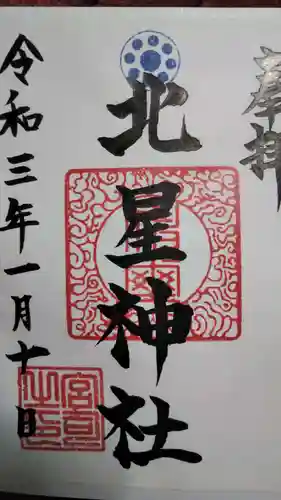 奉拝
北星神社
令和三年一月十日